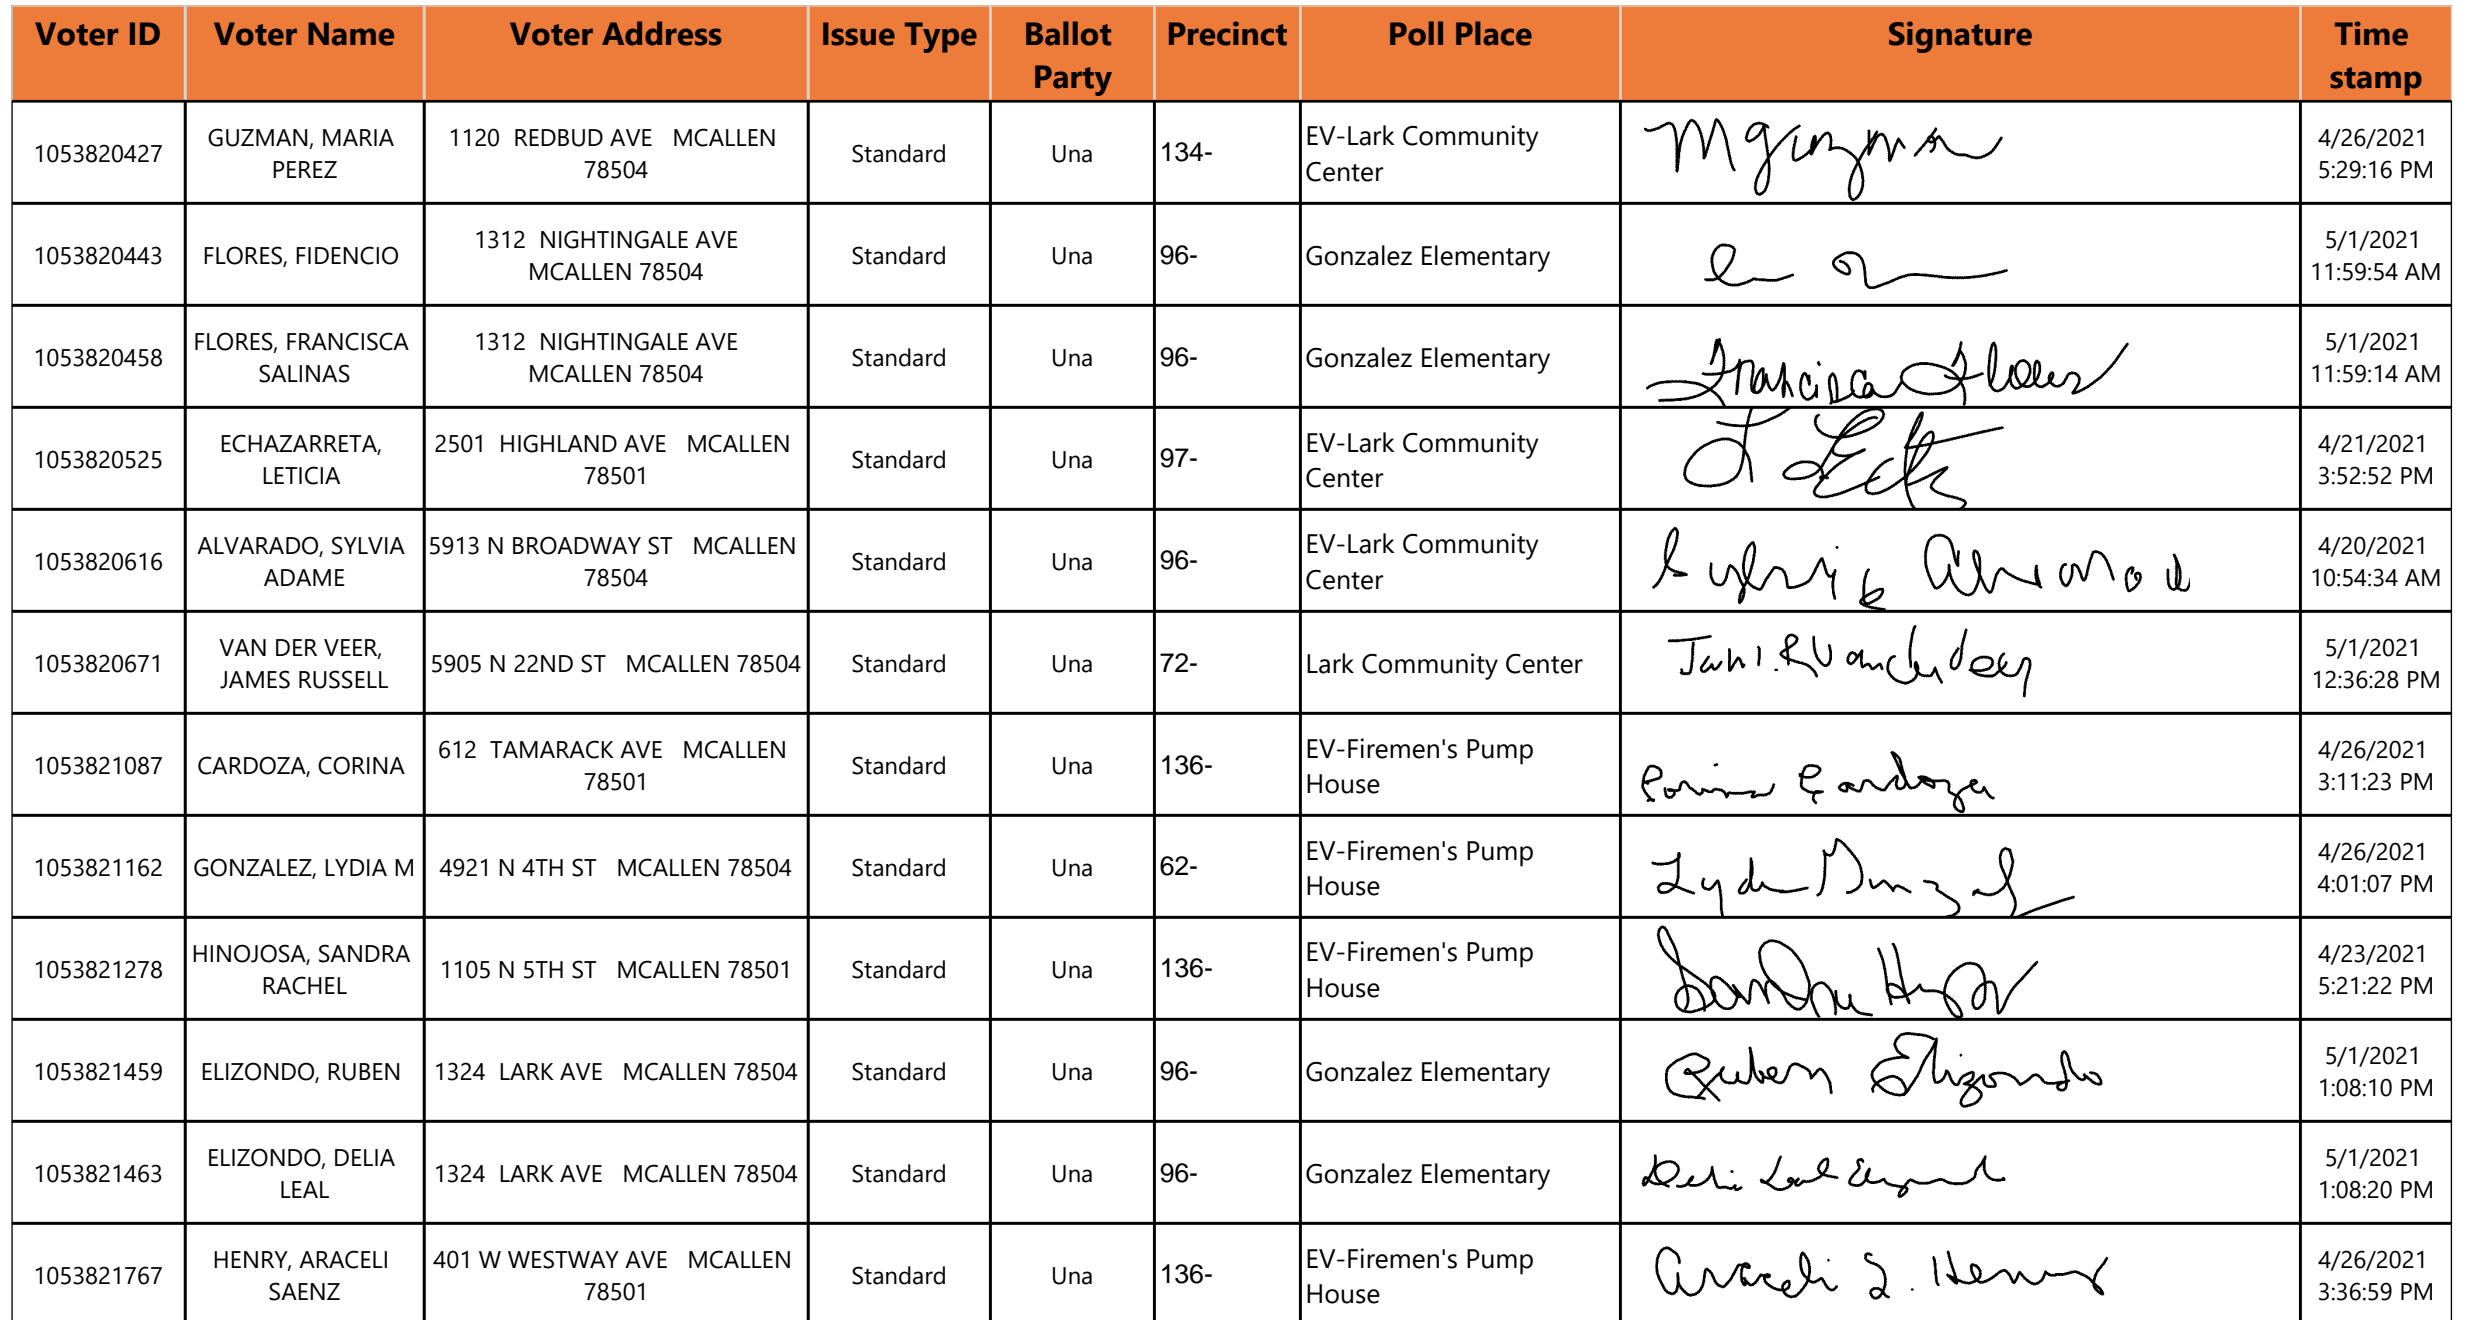 Voter ID Voter Name Voter Address Issue Type Ballot Party Precinct Poll Place Signature Time stamp
1053820427 GUZMAN, MARIA PEREZ 1120 REDBUD AVE MCALLEN 78504 Standard Una 134- EV-Lark Community Center M Guzman 4/26/2021 5:29:16 PM
1053820443 FLORES, FIDENCIO 1312 NIGHTINGALE AVE MCALLEN 78504 Standard Una 96- Gonzalez Elementary 5/1/2021 11:59:54 AM
1053820458 FLORES, FRANCISCA SALINAS 1312 NIGHTINGALE AVE MCALLEN 78504 Standard Una 96- Gonzalez Elementary Francisca Flores 5/1/2021 11:59:14 AM
1053820525 ECHAZARRETA, LETICIA 2501 HIGHLAND AVE MCALLEN 78501 Standard Una 97- EV-Lark Community Center 4/21/2021 3:52:52 PM
1053820616 ALVARADO, SYLVIA ADAME 5913 N BROADWAY ST MCALLEN 78504 Standard Una 96- EV-Lark Community Center Sylvia Alvarado 4/20/2021 10:54:34 AM
1053820671 VAN DER VEER, JAMES RUSSELL 5905 N 22ND ST MCALLEN 78504 Standard Una 72- Lark Community Center 5/1/2021 12:36:28 PM
1053821087 CARDOZA, CORINA 612 TAMARACK AVE MCALLEN 78501 Standard Una 136- EV-Firemen's Pump House Corina Cardoza 4/26/2021 3:11:23 PM
1053821162 GONZALEZ, LYDIA M 4921 N 4TH ST MCALLEN 78504 Standard Una 62- EV-Firemen's Pump House 4/26/2021 4:01:07 PM
1053821278 HINOJOSA, SANDRA RACHEL 1105 N 5TH ST MCALLEN 78501 Standard Una 136- EV-Firemen's Pump House Sandra 4/23/2021 5:21:22 PM
1053821459 ELIZONDO, RUBEN 1324 LARK AVE MCALLEN 78504 Standard Una 96- Gonzalez Elementary Ruben Elizondo 5/1/2021 1:08:10 PM
1053821463 ELIZONDO, DELIA LEAL 1324 LARK AVE MCALLEN 78504 Standard Una 96- Gonzalez Elementary Delia Leal Elizondo 5/1/2021 1:08:20 PM
1053821767 HENRY, ARACELI SAENZ 401 W WESTWAY AVE MCALLEN 78501 Standard Una 136- EV-Firemen's Pump House Araceli S. Henry 4/26/2021 3:36:59 PM